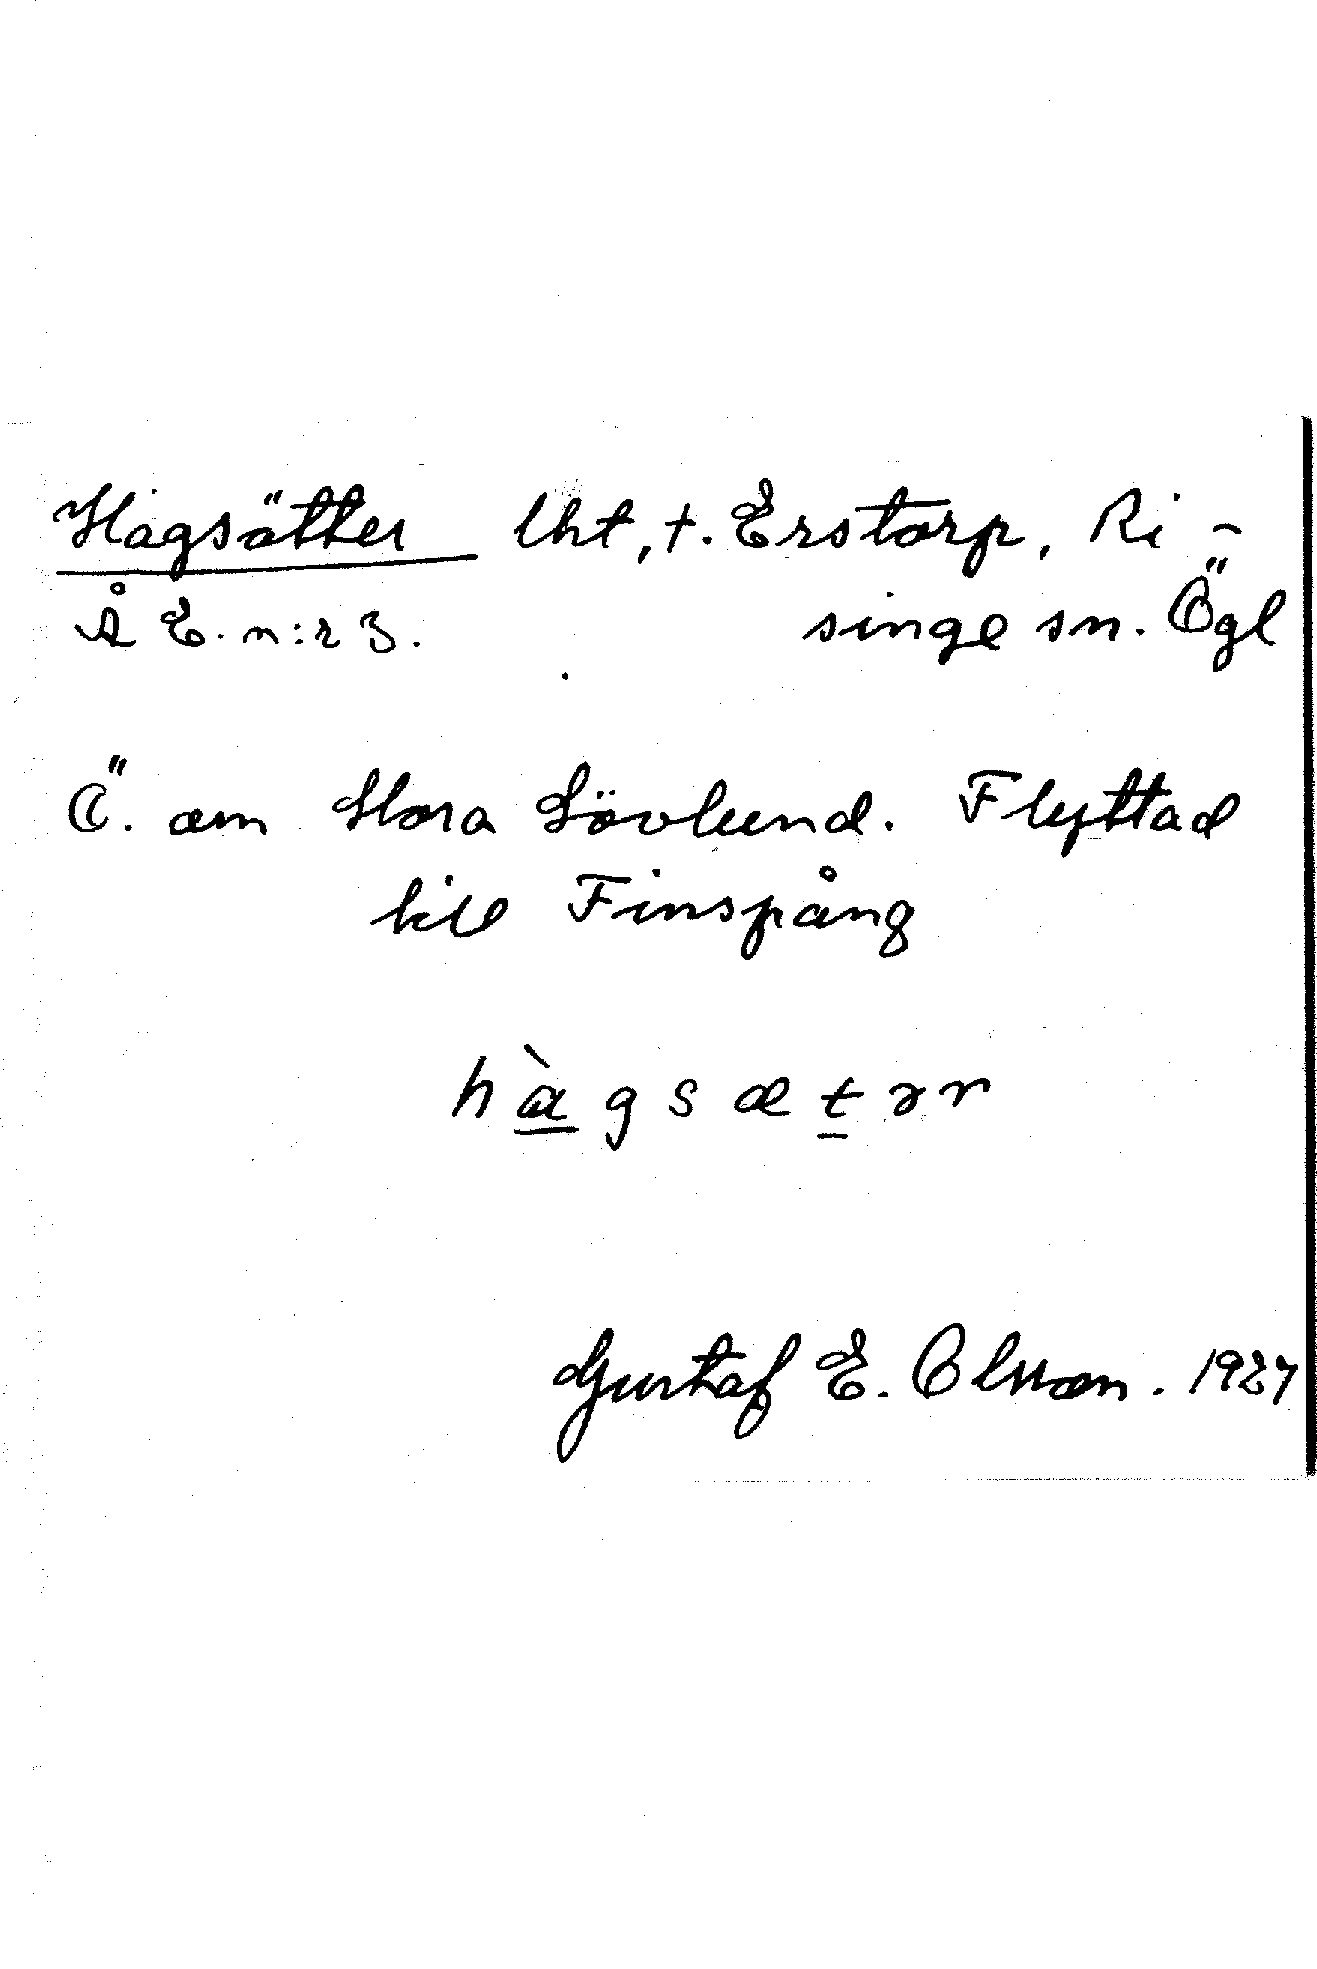 Hagsätter lht, t. Erstorp, Ri-
Å E. n:r 3. singe sn. Ögl
Ö. om Stora Lövlund. Flyttad
till Finspång
hàgsætər
Gustaf E. Olsson. 1927